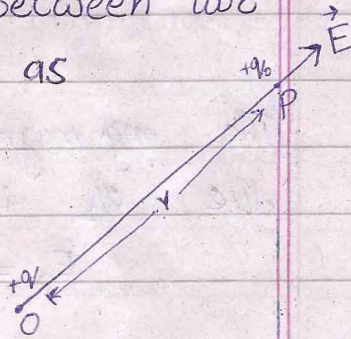 between two
as
E
+q₀
P
r
+q
O